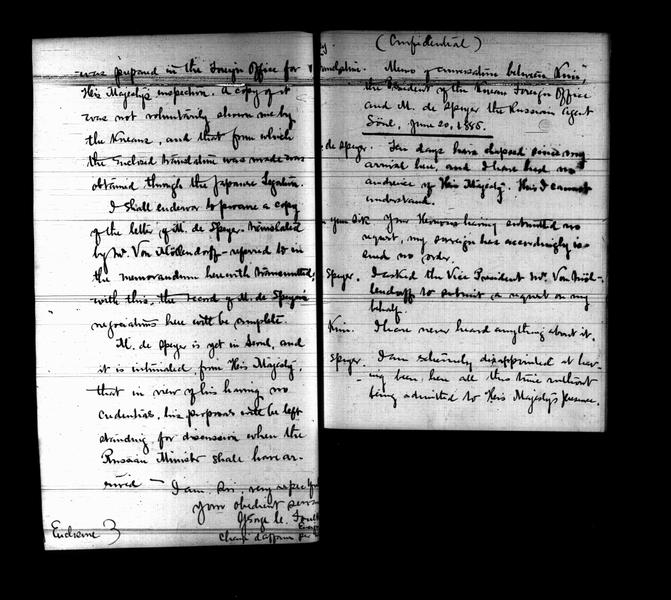 was prepared in the Foreign Office for
His Majesty's inspection. A copy of it
was not voluntarily shown me by
the Koreans, and that from which
the enclosed translation was made was
obtained through the Japanese Legation.
I shall endeavor to procure a copy
of the letter of M. de Speyer, translated
by Mr. Von Möllendorff - referred to in
the memorandum herewith transmitted;
with this, the record of M. de Speyer's
negociations here will be complete.
M. de Speyer is yet in Seoul, and
it is intimated from His Majesty,
that in view of his having no
credentials, his proposals will be left
standing for discussion when the
Russian Minister shall have ar-
rived -
I am, Sir, very respectfu
your obedient serv
George C. Foulk
Ensign
Chargé d'affaires
Enclosure 3
(Confidential)
Memo of conversation between Kim,
the President of the Korean Foreign Office
and M. de Speyer the Russian Agent
Söul, June 20, 1885.
de Speyer. Ten days have elapsed since my
arrival here, and I have had no
audience of His Majesty. This I cannot
understand.
Your Honour having submitted no
request, my sovereign has accordingly is-
sued no order.
Speyer. I asked the Vice President Mr. Von Möl-
lendorff to submit a request on my
behalf.
Kim. I have never heard anything about it.
Speyer. I am extremely disappointed at hav-
ing been here all this time without
being admitted to His Majesty's presence.